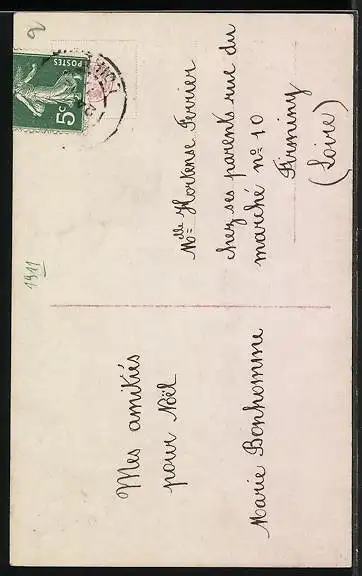 Mes amitiés
pour Noël
Marie Bonhomme
1911
POSTES
5c
Mlle Hortense Ferrier
chez ses parents rue du
marché no 10
Firminy
(Loire)